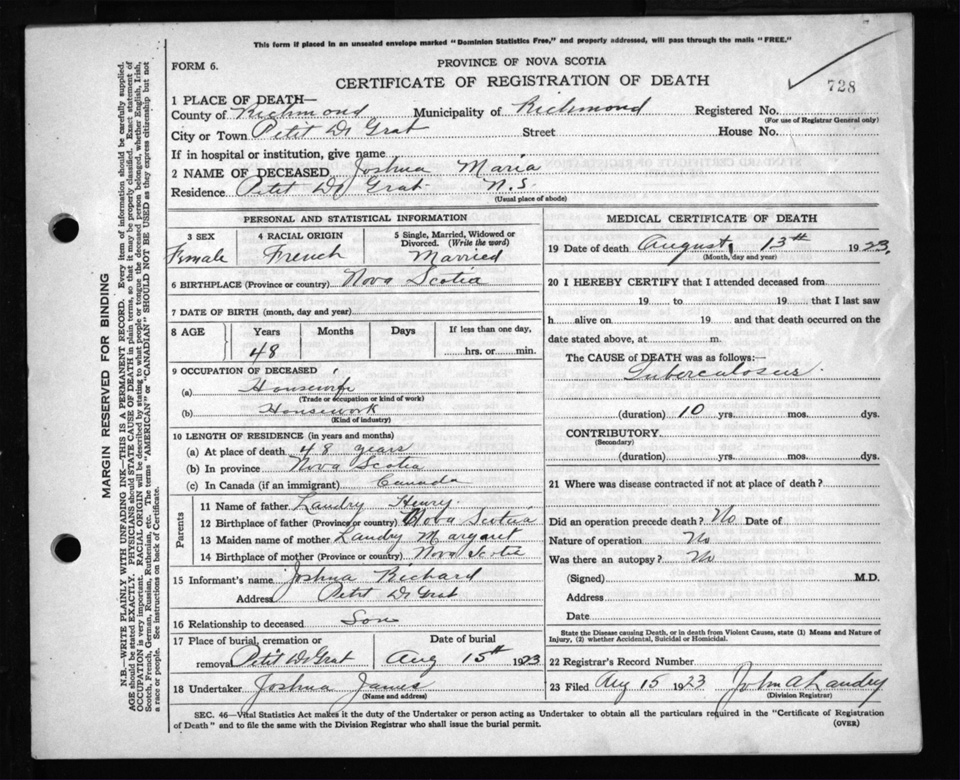 This form if placed in an unsealed envelope marked "Dominion Statistics Free," and properly addressed, will pass through the mails "FREE."
FORM 6.
PROVINCE OF NOVA SCOTIA
CERTIFICATE OF REGISTRATION OF DEATH
728
1 PLACE OF DEATH—
County of Richmond Municipality of Richmond Registered No.
(For use of Registrar General only)
City or Town Petit De Grat Street House No.
If in hospital or institution, give name
2 NAME OF DECEASED Joshua Maria
Residence Petit De Grat N.S.
(Usual place of abode)
PERSONAL AND STATISTICAL INFORMATION
3 SEX
Female
4 RACIAL ORIGIN
French
5 Single, Married, Widowed or
Divorced. (Write the word)
Married
6 BIRTHPLACE (Province or country) Nova Scotia
7 DATE OF BIRTH (month, day and year)
8 AGE Years Months Days If less than one day,
48 hrs. or min.
9 OCCUPATION OF DECEASED
(a) Housewife
(Trade or occupation or kind of work)
(b) Housework
(Kind of industry)
10 LENGTH OF RESIDENCE (in years and months)
(a) At place of death 48 years
(b) In province Nova Scotia
(c) In Canada (if an immigrant) Canada
Parents
11 Name of father Landry Henry
12 Birthplace of father (Province or country) Nova Scotia
13 Maiden name of mother Landry Margaret
14 Birthplace of mother (Province or country) Nova Scotia
15 Informant's name Joshua Richard
Address Petit De Grat
16 Relationship to deceased Son
17 Place of burial, cremation or
removal Petit De Grat
Date of burial
Aug 15th 1923
18 Undertaker Joshua James
(Name and address)
MEDICAL CERTIFICATE OF DEATH
19 Date of death August 13th 1923.
(Month, day and year)
20 I HEREBY CERTIFY that I attended deceased from
19 to 19 that I last saw
h alive on 19 and that death occurred on the
date stated above, at m.
The CAUSE of DEATH was as follows:—
Tuberculosis.
(duration) 10 yrs. mos. dys.
CONTRIBUTORY
(Secondary)
(duration) yrs. mos. dys.
21 Where was disease contracted if not at place of death?
Did an operation precede death? No Date of
Nature of operation No
Was there an autopsy? No
(Signed) M.D.
Address
Date
State the Disease causing Death, or in death from Violent Causes, state (1) Means and Nature of
Injury, (2) whether Accidental, Suicidal or Homicidal.
22 Registrar's Record Number
23 Filed Aug 15 1923 John A Landry
(Division Registrar)
SEC. 46—Vital Statistics Act makes it the duty of the Undertaker or person acting as Undertaker to obtain all the particulars required in the "Certificate of Registration
of Death" and to file the same with the Division Registrar who shall issue the burial permit.
(OVER)
MARGIN RESERVED FOR BINDING
N.B.—WRITE PLAINLY WITH UNFADING INK—THIS IS A PERMANENT RECORD. Every item of information should be carefully supplied.
AGE should be stated EXACTLY. PHYSICIANS should STATE CAUSE OF DEATH in plain terms, so that it may be properly classified. Exact statement of
OCCUPATION is very important. RACIAL ORIGIN will be described by stating to what people or tongue the deceased person belonged, whether English, Irish,
Scotch, French, German, Russian, Ruthenian, etc. The terms "AMERICAN" or "CANADIAN" SHOULD NOT BE USED as they express citizenship but not
a race or people. See instructions on back of Certificate.